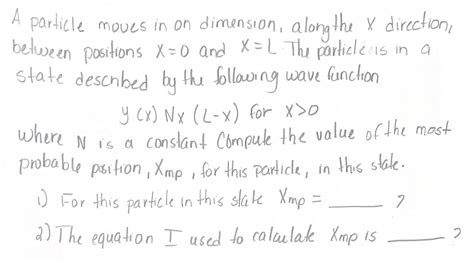 A particle moves in on dimension, along the X direction,
between positions X=0 and X=L. The particle is in a
state described by the following wave function
y(x) Nx (L-x) for x>0
where N is a constant Compute the value of the most
probable position, Xmp, for this particle, in this state.
1) For this particle in this state Xmp = ______ ?
2) The equation I used to calculate Xmp is ______ ?